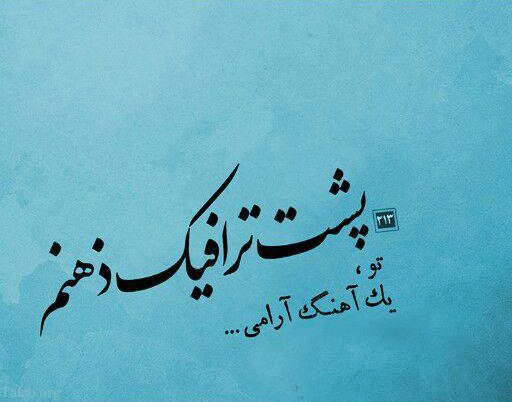 پشت ترافیک ذهنم
۲۱۳
تو ،
یك آهنگ آرامی ...
Talab.org